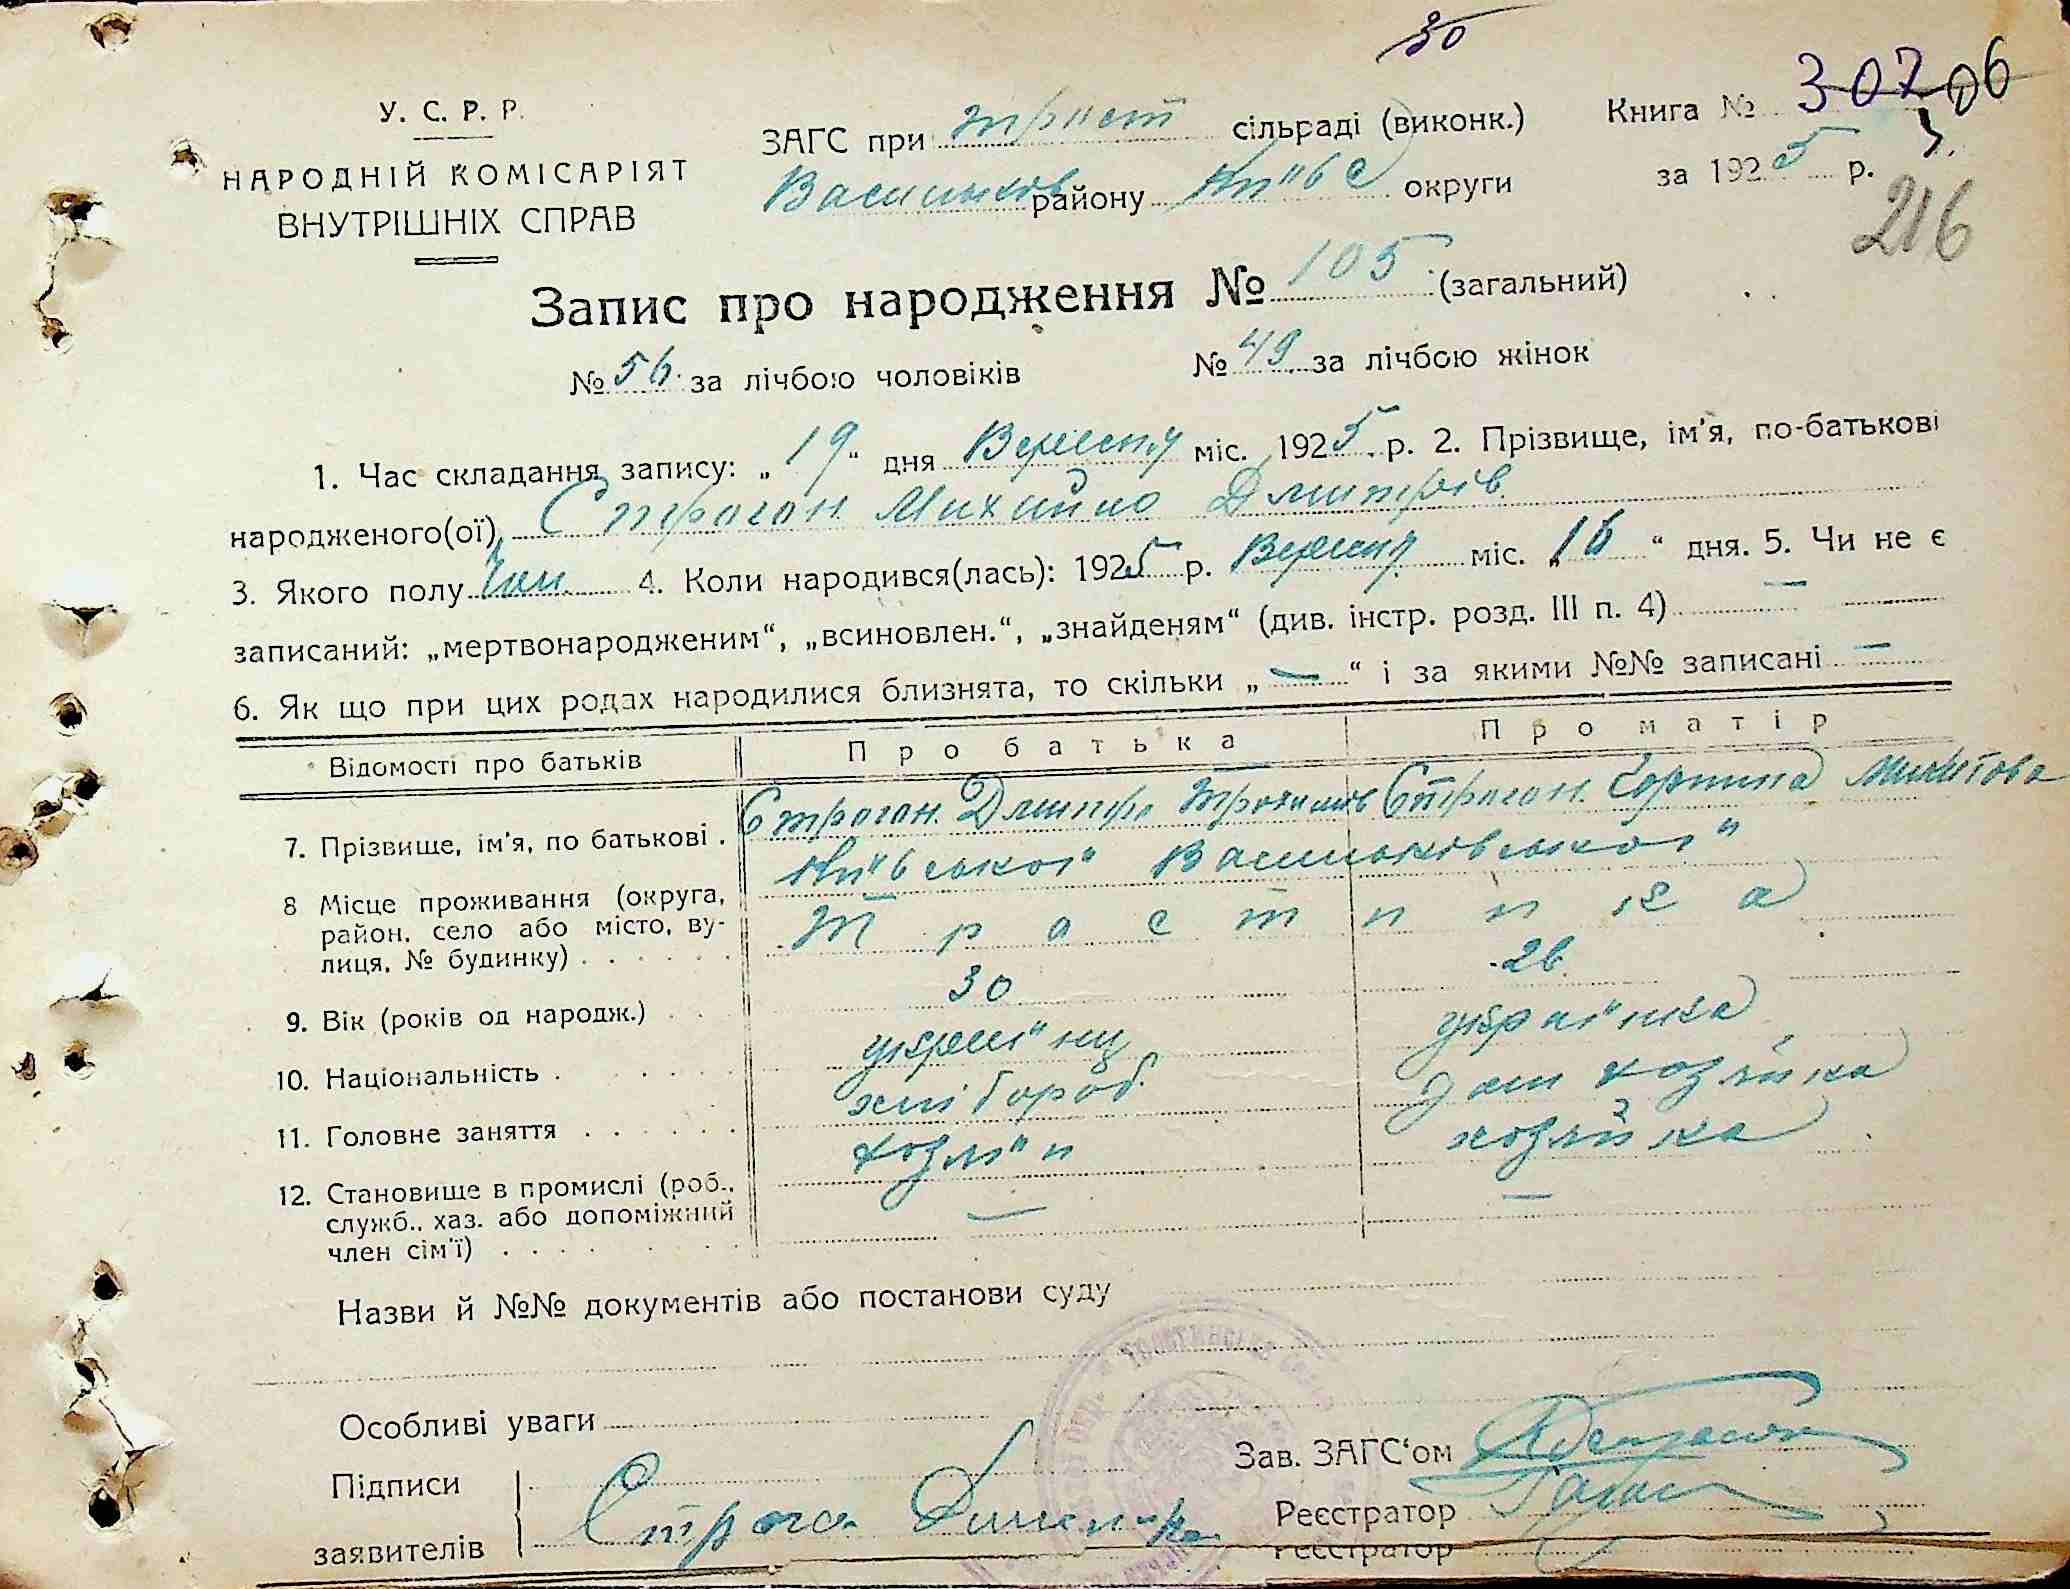 30
У. С. Р. Р.
НАРОДНІЙ КОМІСАРІЯТ
ВНУТРІШНІХ СПРАВ
ЗАГС при сільраді (виконк.)
Васильков району Київс округи
Книга № 307 06
за 1925 р.
216
Запис про народження № 105 (загальний)
№ 56 за лічбою чоловіків № 49 за лічбою жінок
1. Час складання запису: „19“ дня Вересня міс. 1925 р. 2. Прізвище, ім'я, по-батькові
народженого(ої) Строган Михайло Дмитрів
3. Якого полу Чол. 4. Коли народився(лась): 1925 р. Вересня міс. „16“ дня. 5. Чи не є
записаний: „мертвонародженим“, „всиновлен.“, „знайденям“ (див. інстр. розд. III п. 4) —
6. Як що при цих родах народилися близнята, то скільки „—“ і за якими №№ записані —
Відомості про батьків Про батька Про матір
7. Прізвище, ім'я, по батькові . Строган Дмитро Строган Микитова
8 Місце проживання (округа, район, село або місто, вулиця, № будинку) Київської Васильківської
9. Вік (років од народж.) 30 26
10. Національність . українц українка
11. Головне заняття хлібороб дом хозяйка
12. Становище в промислі (роб., служб., хаз. або допоміжний член сім'ї) хозяїн хозяйка
— —
Назви й №№ документів або постанови суду
Особливі уваги
Підписи
заявителів Строган Дмитро
Зав. ЗАГС‘ом
Реєстратор
Реєстратор